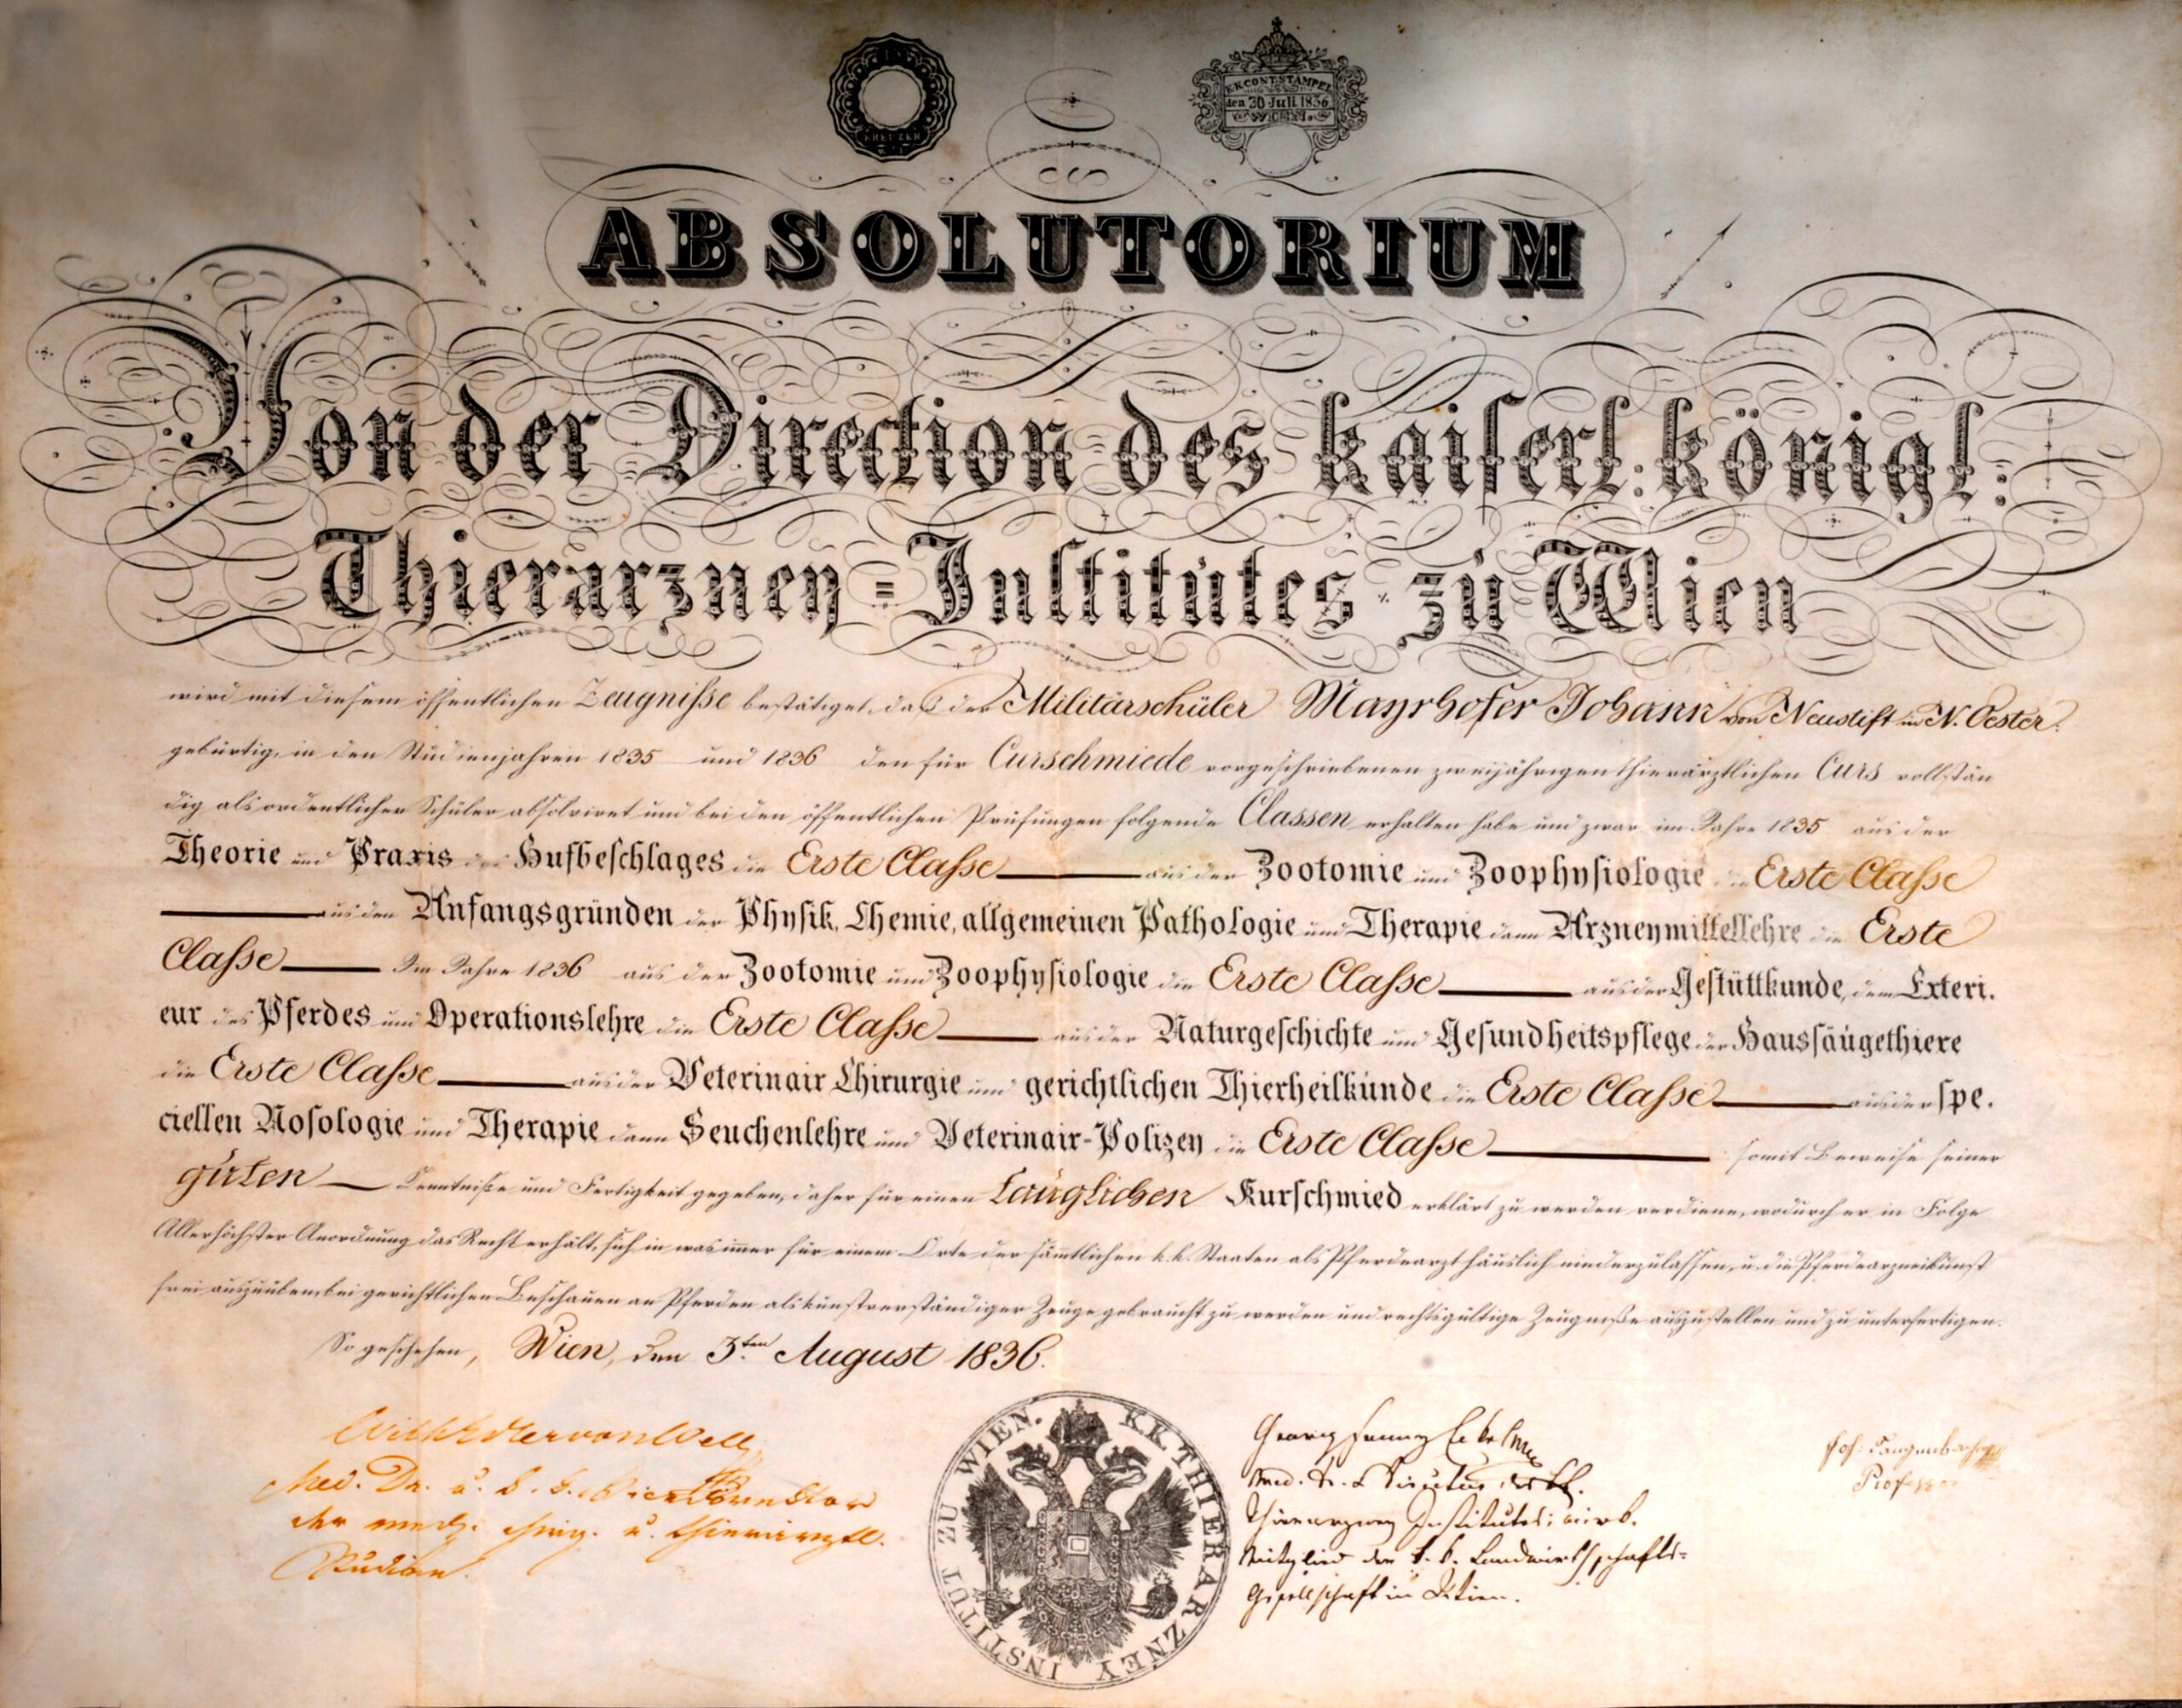 KREUZER
K.K. CONT. STAMPEL
den 30 Juli 1836
WIEN.
ABSOLUTORIUM
Von der Direction des kaiserl: königl:
Thierarzney=Institutes zu Wien
wird mit diesem öffentlichen Zeugniße bestätiget, daß der Militärschüler Mayrhofer Johann von Neustift in N. Oester:
gebürtig, in den Studienjahren 1835 und 1836 den für Curschmiede vorgeschriebenen zweijährigen thierärztlichen Curs vollstän
dig als ordentlicher Schüler absolviret und bei den öffentlichen Prüfungen folgende Classen erhalten habe und zwar im Jahre 1835 aus der
Theorie und Praxis des Hufbeschlages die Erste Claße aus der Zootomie und Zoophysiologie die Erste Claße
aus den Anfangsgründen der Physik, Chemie, allgemeinen Pathologie und Therapie dann Arzneymittellehre die Erste
Claße Im Jahre 1836 aus der Zootomie und Zoophysiologie die Erste Claße aus der Gestüttkunde, dem Exteri.
eur des Pferdes und Operationslehre die Erste Claße aus der Naturgeschichte und Gesundheitspflege der Haussäugethiere
die Erste Claße aus der Veterinair Chirurgie und gerichtlichen Thierheilkunde die Erste Claße aus der spe.
ciellen Nosologie und Therapie dann Seuchenlehre und Veterinair-Polizey die Erste Claße somit Beweise seiner
guten Kenntniße und Fertigkeit gegeben, daher für einen tauglichen Kurschmied erklärt zu werden verdiene, wodurch er in Folge
Allerhöchster Anordnung das Recht erhält, sich in was immer für einem Orte der sämtlichen k.k. Staaten als Pferdearzt häuslich niederzulassen, u. die Pferdearzneikunst
frei auszuüben, bei gerichtlichen Beschauen an Pferden als kunstverständiger Zeuge gebraucht zu werden und rechtsgültige Zeugniße auszustellen und zu unterfertigen.
So geschehen, Wien, den 3ten August 1836.
Wilh Edler von Well
Med. Dr. u. k. k. Vice Director
der med. chirg. u. thierärztl.
Studien.
K.K. THIERARZNEY INSTITUT ZU WIEN.
Georg Franz Eckel
Med. Dr. u Director des kk.
Thierarzney Institutes; wirkl.
Mitglied der k. k. Landwirthschafts-
Gesellschaft in Wien.
Joh: Langenbacher
Professor